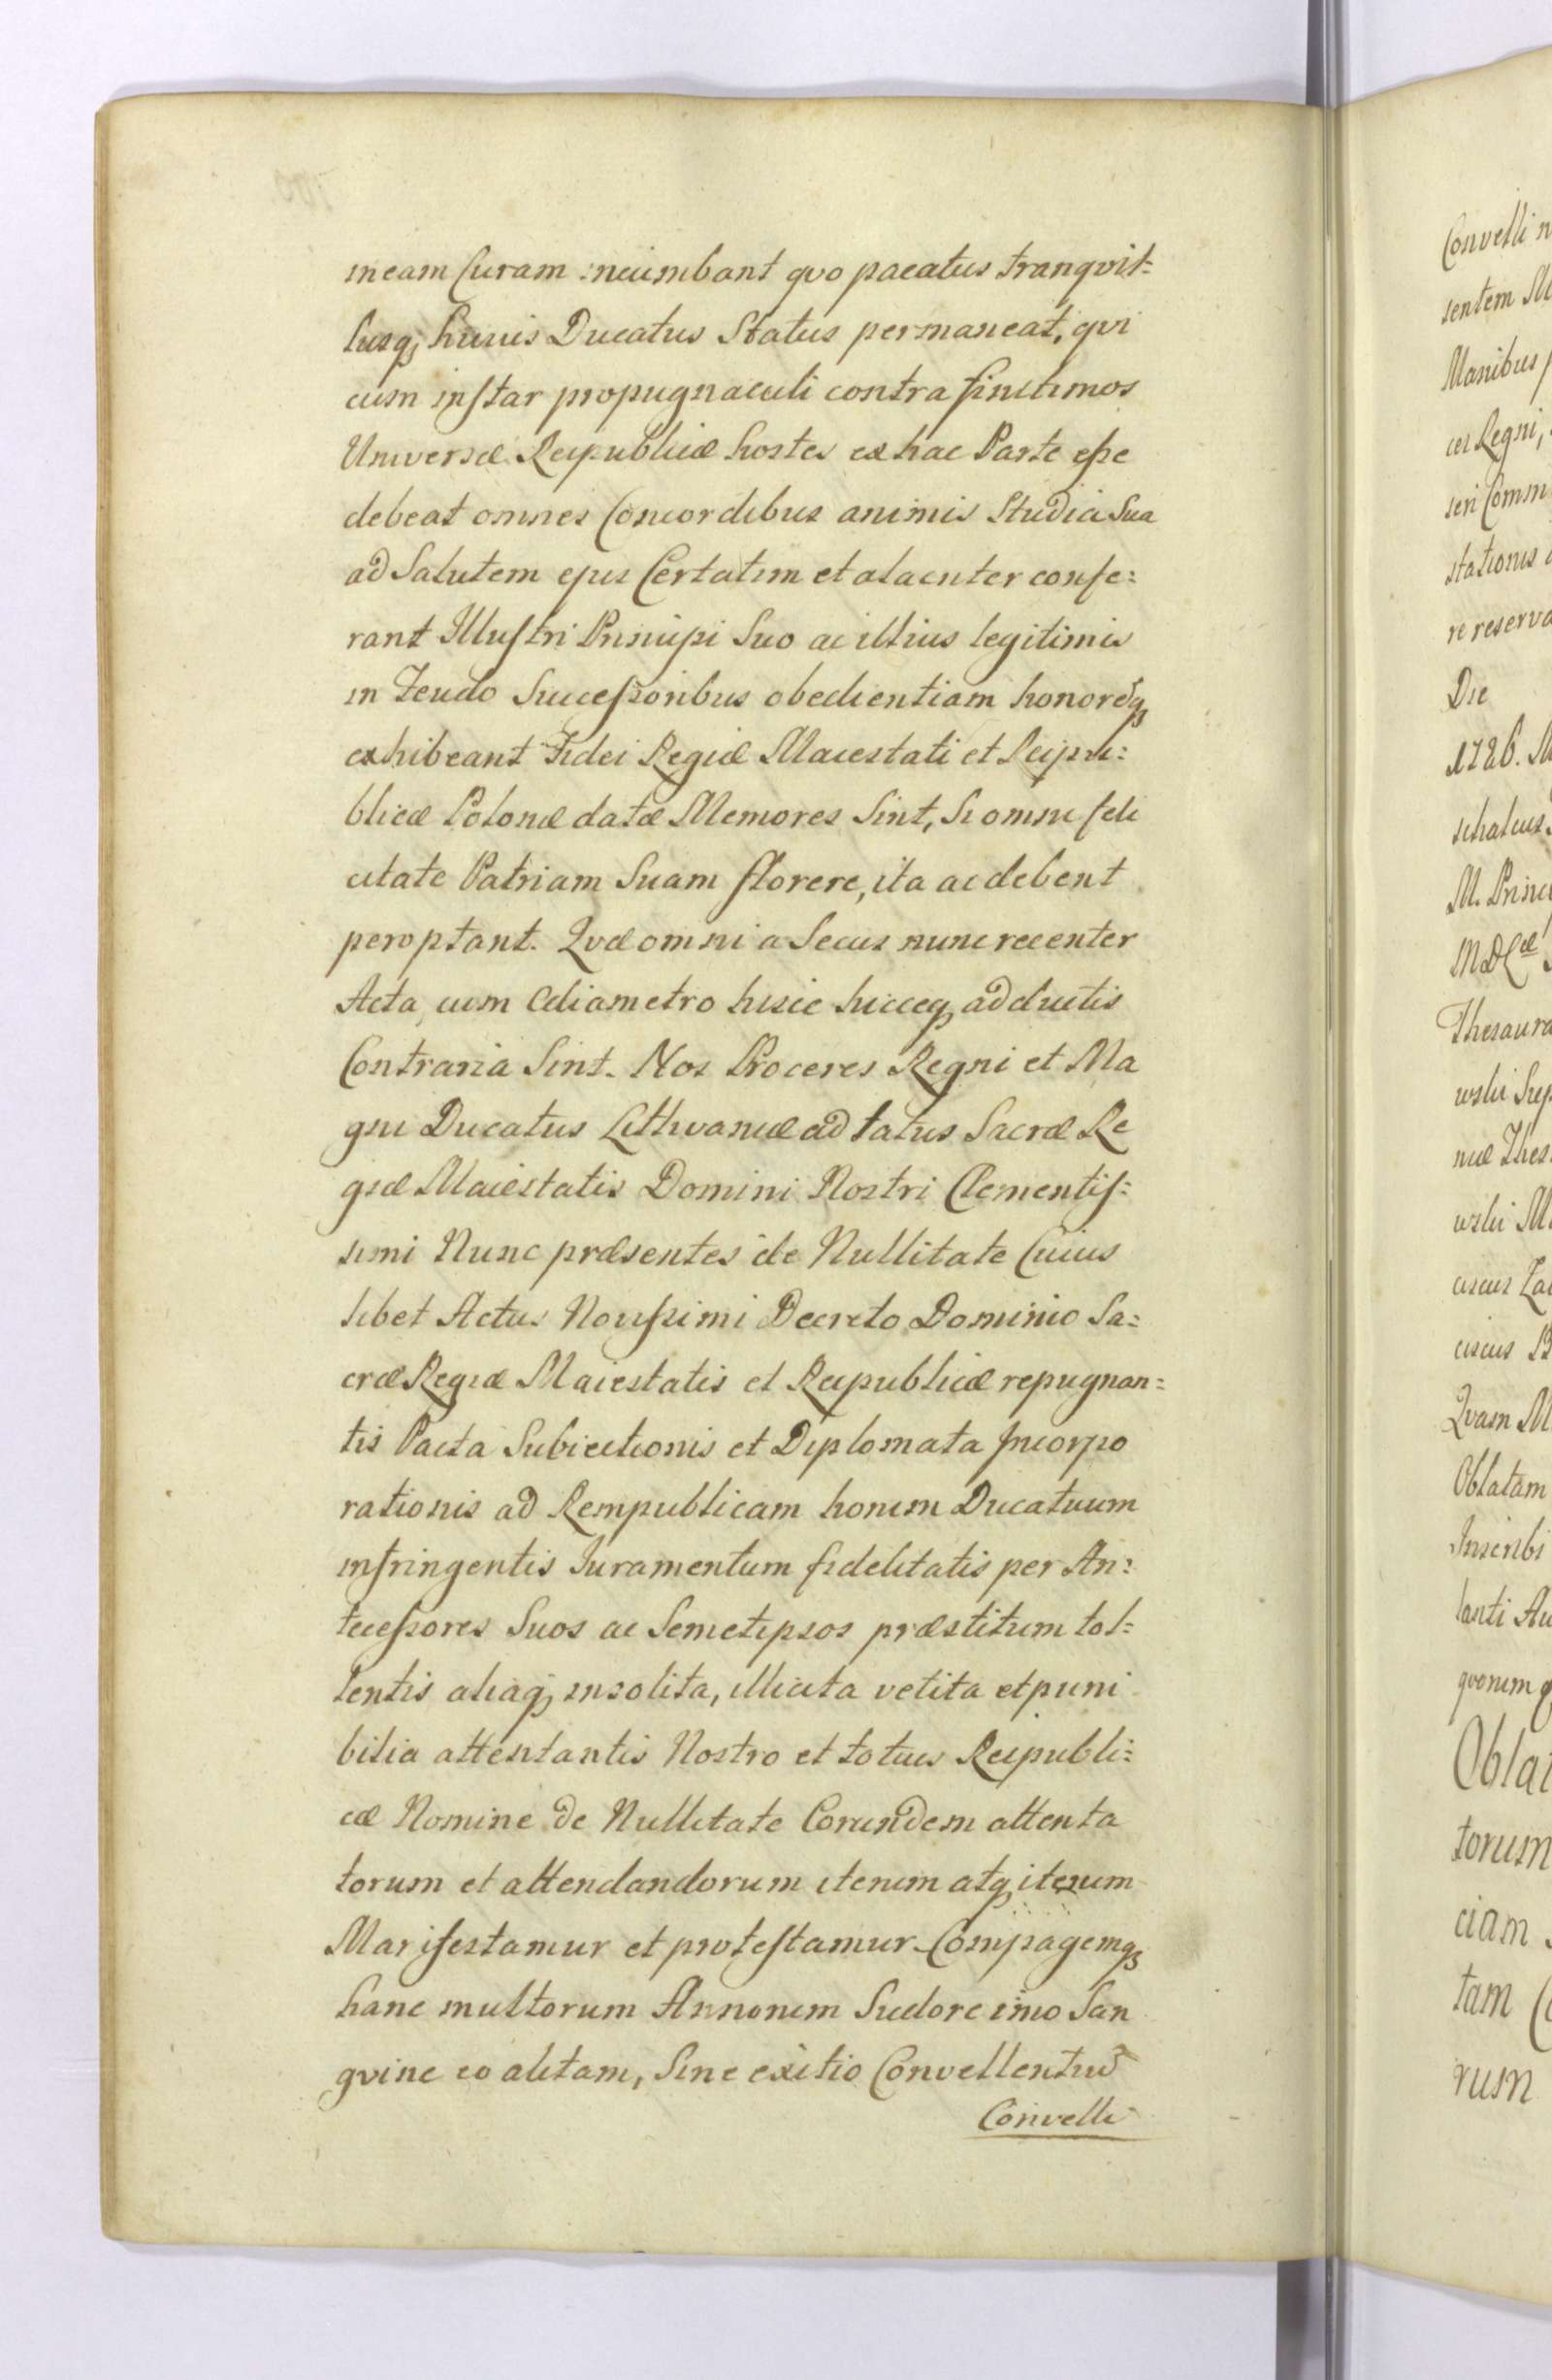 in eam Curam incumbant quo pacatus tranqvil=
lusq; huius Ducatus Status permaneat, qvi
cum instar propugnaculi contra finitimos
Universæ Reipublicæ hostes ex hac Parte esse
debeat omnes Concordibus animis Studia Sua
ad Salutem ejus Certatim et alacriter confe=
rant Illustri Principi Suo ac illius legitimis
in Feudo Successoribus obedientiam honoreq;
exhibeant Fidei Regiæ Maiestati et Reipu=
blicæ Polonæ datæ Memores Sint, Si omni feli
citate Patriam Suam florere, ita ac debent
peroptant. Qvæ omnia Secus nunc recenter
Acta, cum Ediametro hisce hucceq; adductis
Contraria Sint. Nos Proceres Regni et Ma
gni Ducatus Lithvaniæ ad latus Sacræ Re
giæ Maiestatis Domini Nostri Clementis=
simi Nunc præsentes de Nullitate Cuius
libet Actus Novissimi Decreto Dominio Sa=
cræ Regiæ Maiestatis et Reipublicæ repugnan=
tis Pacta Subiectionis et Diplomata Incorpo
rationis ad Rempublicam horum Ducatuum
infringentis Iuramentum fidelitatis per An=
tecessores Suos ac Semetipsos præstitum tol=
lentis aliaq; insolita, illicita vetita et puni
bilia attentantis Nostro et totius Reipubli=
cæ Nomine de Nullitate Eorundem attenta
torum et attendandorum iterum atq; iterum
Manifestamur et protestamur Compagemq;
hanc multorum Annorum Sudore imo San
gvine coalitam, Sine exitio Convellentium
Convelli
Convelli n
sentem M
Manibus p
ces Regni,
seri Comm
stationis
re reserva
Die
1726. M
schalcus
M. Princ
Thesaura
wski Sup
niæ Thes
wski M
ciscus Za
ciscus B
Qvam M
Oblatam
Inscribi
lanti Au
qvorum q
Oblat
torum
ciam
tam C
rum